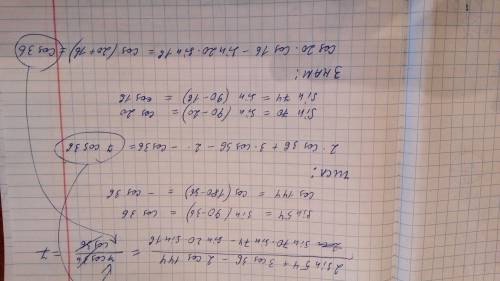 2 sin 54 + 3 cos 36 - 2 cos 144
sin 70 · sin 74 - sin 20 · sin 16
= 7 cos 36
cos 36
= 7
sin 54 = sin (90-36) = cos 36
cos 144 = cos (180-36) = - cos 36
числ:
2 · cos 36 + 3 · cos 36 - 2 · - cos 36 = 7 cos 36
sin 70 = sin (90-20) = cos 20
sin 74 = sin (90-16) = cos 16
знам:
cos 20 · cos 16 - sin 20 · sin 16 = cos (20+16) = cos 36